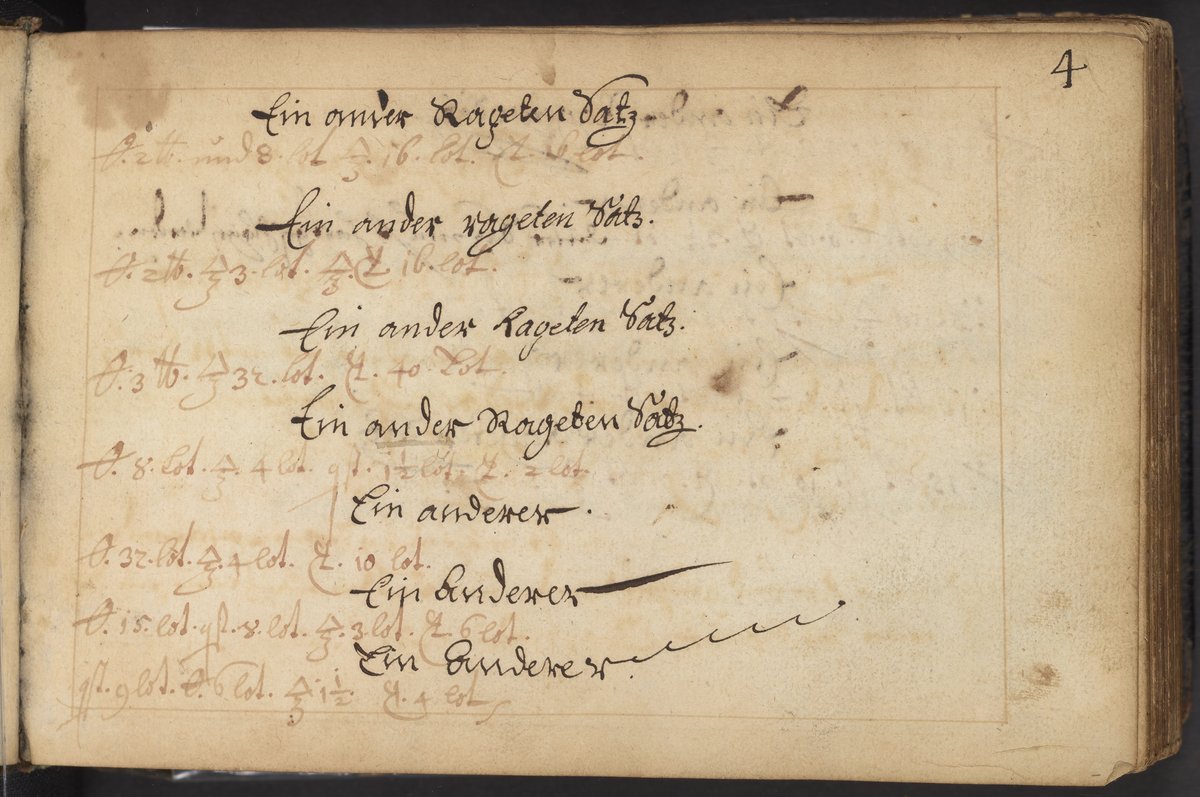 4
Ein ander Rageten Satz
2 ℔. und 8. lot 🜍. 16. lot. 6 lot.
Ein ander rageten Satz.
2 ℔. 🜍 3. lot. 16. lot.
Ein ander Rageten Satz.
3 ℔. 🜍 32. lot. 40 Lot.
Ein ander Rageten Satz.
8. lot. 🜍. 4 lot. qst. 1½ lot. 2 lot.
Ein anderer.
32. lot. 🜍. 4 lot. 10 lot.
Ein Anderer
15. lot. qst. 8. lot. 🜍. 3. lot. 6 lot.
Ein Anderer.
qst. 9 lot. 6 lot. 🜍 1½. 4 lot